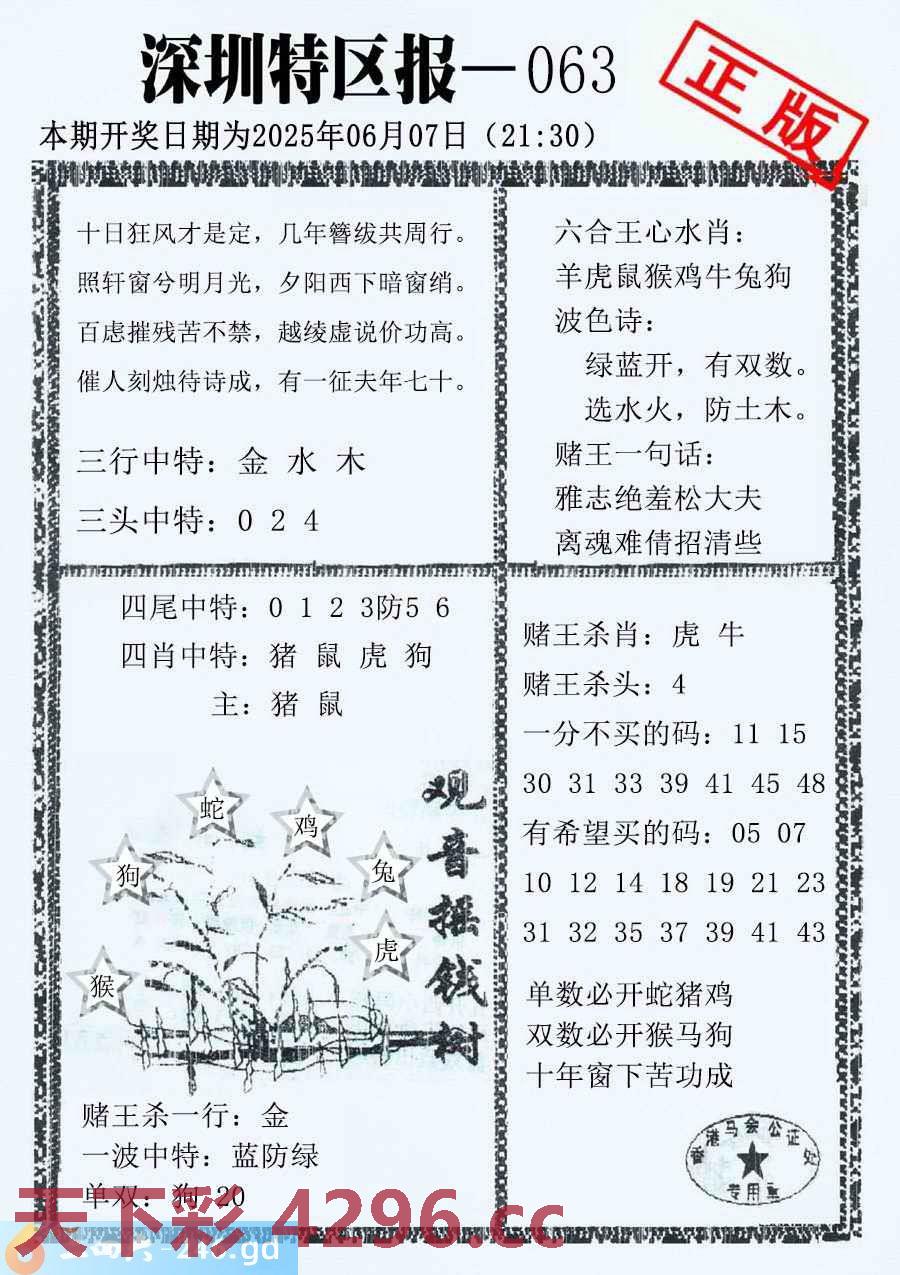 深圳特区报—063
正版
本期开奖日期为2025年06月07日（21:30）
十日狂风才是定，几年簪绂共周行。
照轩窗兮明月光，夕阳西下暗窗绡。
百虑摧残苦不禁，越绫虚说价功高。
催人刻烛待诗成，有一征夫年七十。
三行中特：金 水 木
三头中特：0 2 4
六合王心水肖：
羊虎鼠猴鸡牛兔狗
波色诗：
绿蓝开，有双数。
选水火，防土木。
赌王一句话：
雅志绝羞松大夫
离魂难倩招清些
四尾中特：0 1 2 3防5 6
四肖中特：猪 鼠 虎 狗
主：猪 鼠
蛇
鸡
狗
兔
虎
猴
观音摇钱树
赌王杀一行：金
一波中特：蓝防绿
单双：狗 20
赌王杀肖：虎 牛
赌王杀头：4
一分不买的码：11 15
30 31 33 39 41 45 48
有希望买的码：05 07
10 12 14 18 19 21 23
31 32 35 37 39 41 43
单数必开蛇猪鸡
双数必开猴马狗
十年窗下苦功成
香港马会公证处
专用章
天下彩 4296.cc